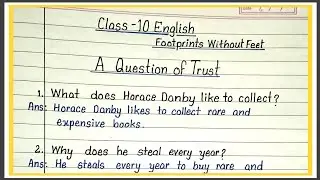 Class-10 English
Footprints Without Feet
A Question of Trust
1. What does Horace Danby like to collect?
Ans: Horace Danby likes to collect rare and
expensive books.
2. Why does he steal every year?
Ans: He steals every year to buy rare and